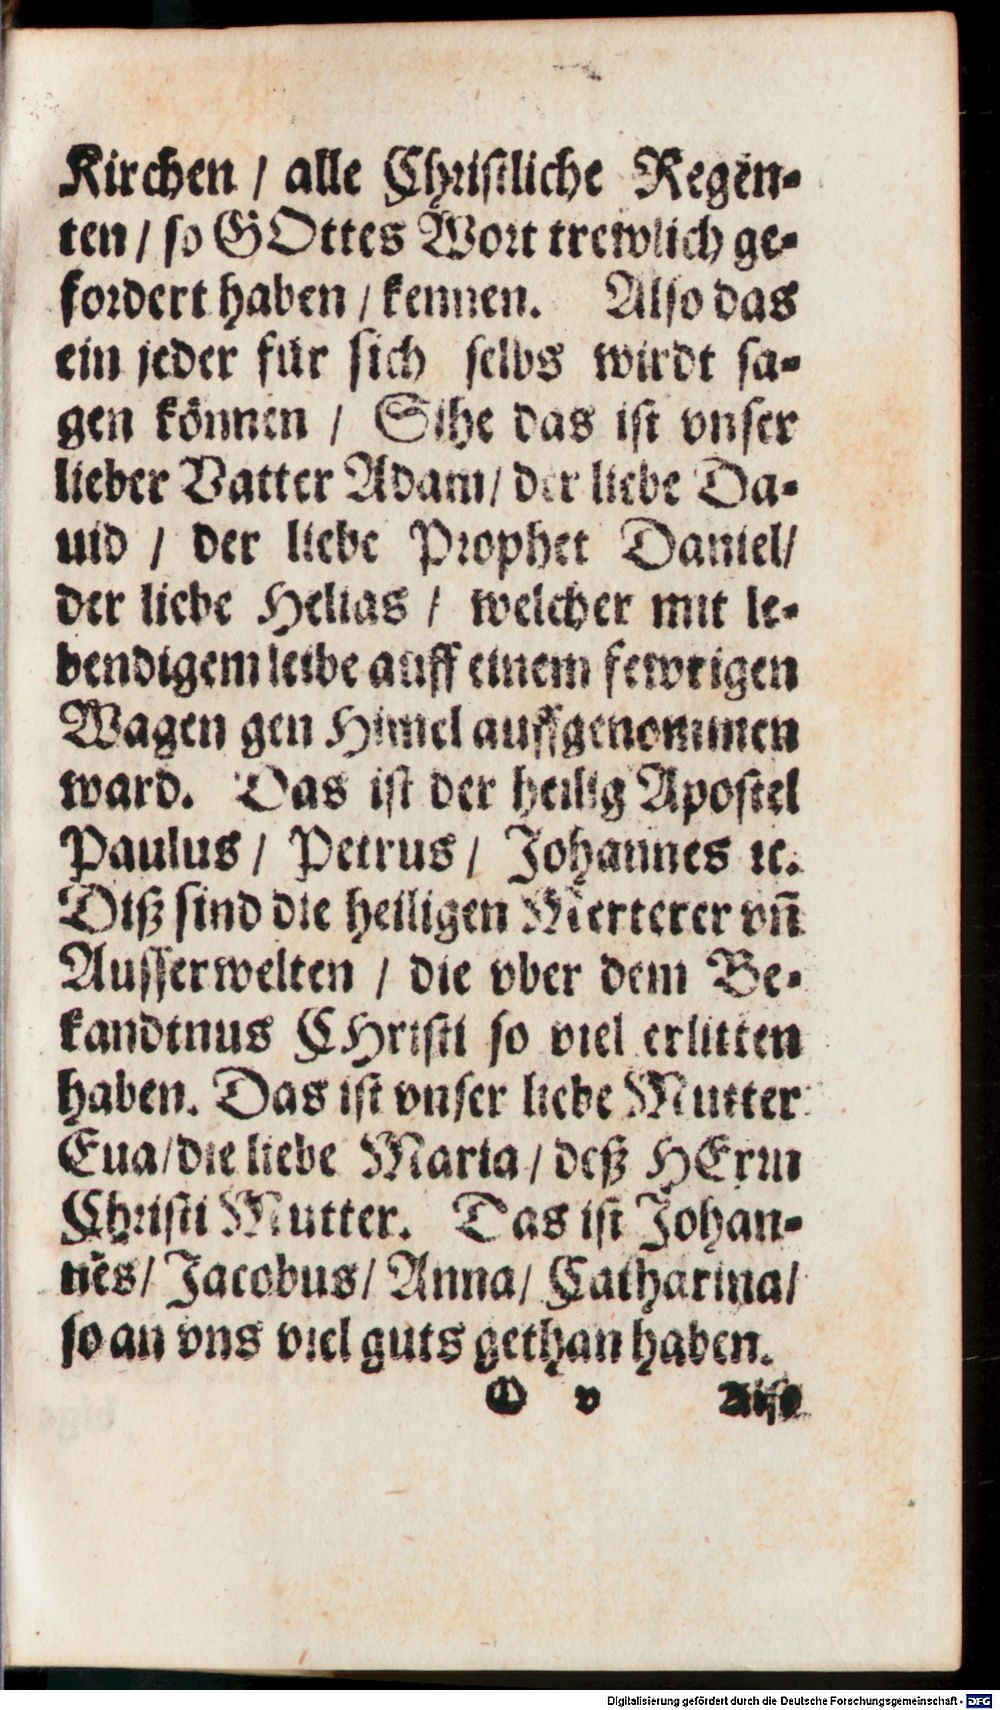 Kirchen / alle Christliche Regen-
ten / so GOttes Wort trewlich ge-
fordert haben / kennen. Also das
ein jeder für sich selbs wirdt sa-
gen können / Sihe das ist vnser
lieber Vatter Adam / der liebe Da-
uid / der liebe Prophet Daniel /
der liebe Helias / welcher mit le-
bendigem leibe auff einem fewrigen
Wagen gen Himel auffgenommen
ward. Das ist der heilig Apostel
Paulus / Petrus / Johannes ꝛc.
Diß sind die heiligen Merterer vñ
Ausserwelten / die vber dem Be-
kandtnus CHristi so viel erlitten
haben. Das ist vnser liebe Mutter
Eua / die liebe Maria / deß HErrn
Christi Mutter. Das ist Johan-
nes / Jacobus / Anna / Catharina /
so an vns viel guts gethan haben.
v Also
Digitalisierung gefördert durch die Deutsche Forschungsgemeinschaft - DFG